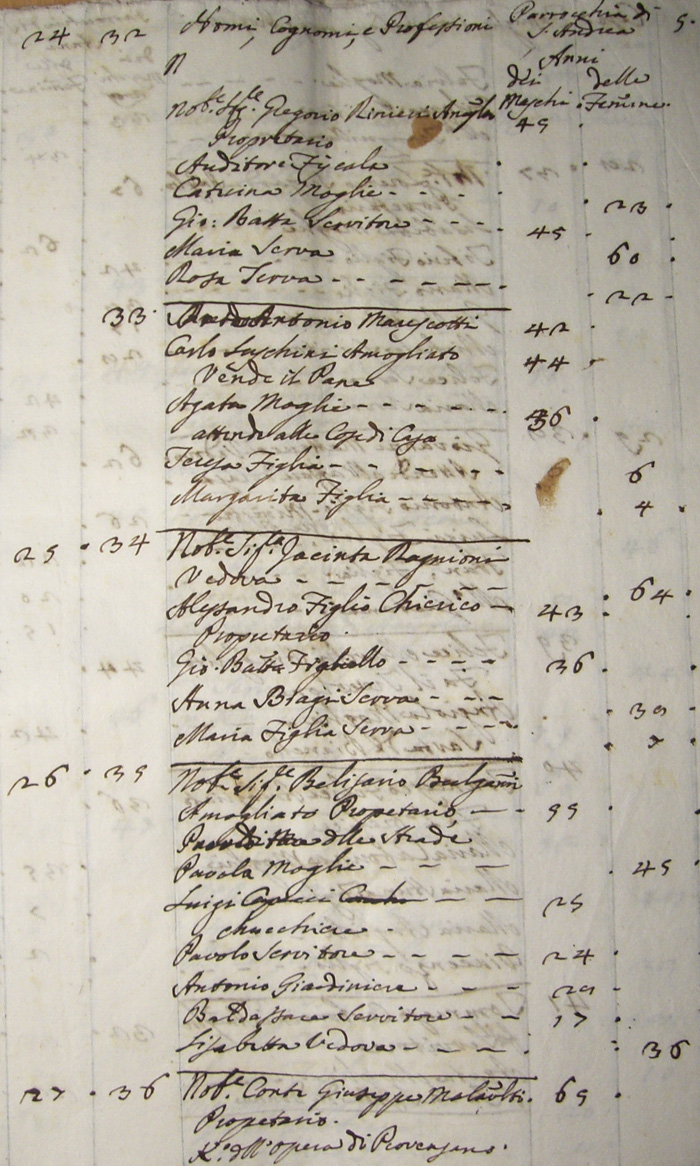 24 32 Nomi, Cognomi, e Professioni Parrocchia di S. Andrea 5.
N Anni
dei Maschi delle Femine
Nob.e Sig.re Gregorio Rinieri 45
Propretario
Auditore Fiscale
Caterina Moglie - - - - 23
Gio: Batta Servitore - - - 45
Maria Serva 60
Rosa Serva - - - - - - 22
33 Antonio Marescotti 42
Carlo Luschini Amogliato 44
Vende il Pane
Agata Moglie - - - - - 36
attende alle Cose di Casa
Teresa Figlia - - - - - 6
Margarita Figlia - - - - 4
25 34 Nob.e Sig.ra Jacinta Ragnioni
Vedova - - - - - 64
Alessandro Figlio Chierico - 43
Proprietario
Gio: Batta Figliello - - - - 36
Anna Biagi Serva - - - 30
Maria Figlia Serva - - -
26 35 Nob.e Sig.re Belisario Bulgarini
Amogliato Propetario - - 55
delle Strade
Pavola Moglie - - - 45
Luigi - - 25
Pavolo Servitore - - - - 24
Antonio Giardiniere - - -
Baldassare Servitore - - 17
Lisabetta Vedova - - - - 36
27 36 Nob.e Conte Giuseppe Malavolti 65
Propetario.
dell'Opera di Provenzano.